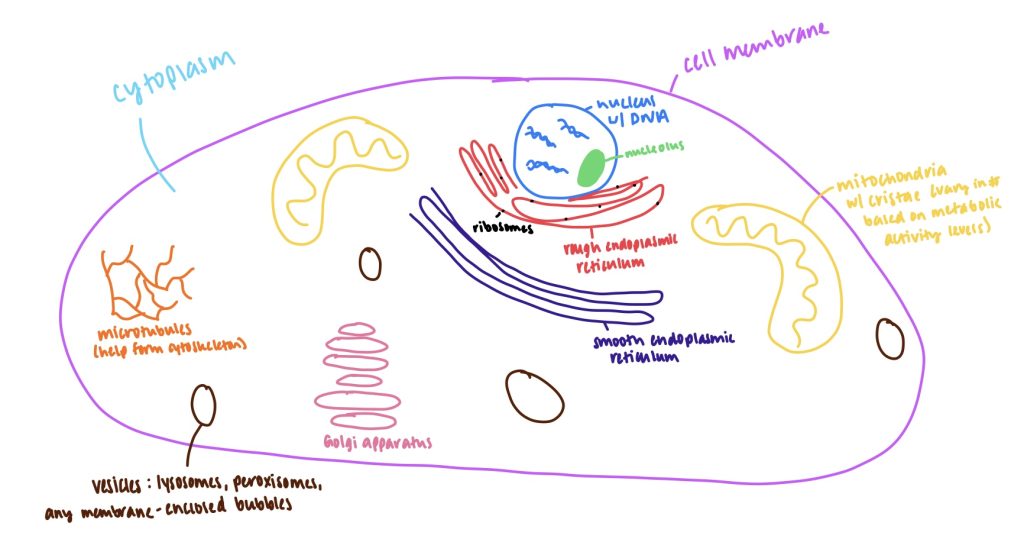 cytoplasm
cell membrane
nucleus
w/ DNA
nucleolus
mitochondria
w/ cristae (vary in #
based on metabolic
activity levels)
ribosomes
rough endoplasmic
reticulum
microtubules
(help form cytoskeleton)
smooth endoplasmic
reticulum
Golgi apparatus
vesicles: lysosomes, peroxisomes,
any membrane-enclosed bubbles